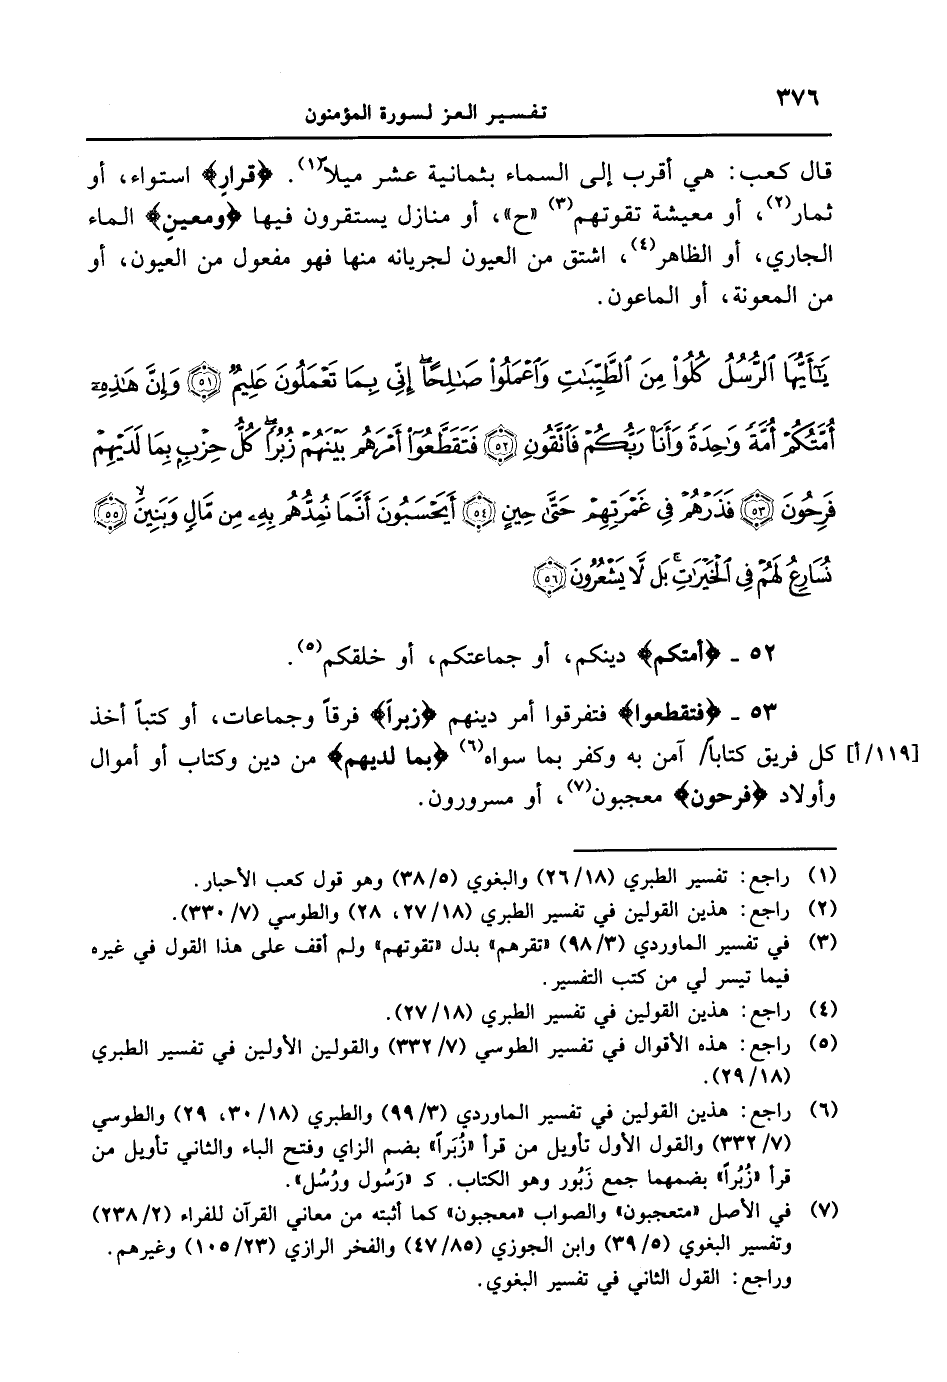 ٣٧٦
تفسير العز لسورة المؤمنون
قال كعب: هي أقرب إلى السماء بثمانية عشر ميلاً(١). ﴿قرارٍ﴾ استواء، أو
ثمار(٢)، أو معيشة تقوتهم(٣) «ح»، أو منازل يستقرون فيها ﴿ومعينٍ﴾ الماء
الجاري، أو الظاهر(٤)، اشتق من العيون لجريانه منها فهو مفعول من العيون، أو
من المعونة، أو الماعون.
يَٰٓأَيُّهَا ٱلرُّسُلُ كُلُوا۟ مِنَ ٱلطَّيِّبَٰتِ وَٱعْمَلُوا۟ صَٰلِحًا ۖ إِنِّى بِمَا تَعْمَلُونَ عَلِيمٌ ﴿٥١﴾ وَإِنَّ هَٰذِهِۦٓ
أُمَّتُكُمْ أُمَّةً وَٰحِدَةً وَأَنَا۠ رَبُّكُمْ فَٱتَّقُونِ ﴿٥٢﴾ فَتَقَطَّعُوٓا۟ أَمْرَهُم بَيْنَهُمْ زُبُرًا ۖ كُلُّ حِزْبٍۭ بِمَا لَدَيْهِمْ
فَرِحُونَ ﴿٥٣﴾ فَذَرْهُمْ فِى غَمْرَتِهِمْ حَتَّىٰ حِينٍ ﴿٥٤﴾ أَيَحْسَبُونَ أَنَّمَا نُمِدُّهُم بِهِۦ مِن مَّالٍ وَبَنِينَ ۙ ﴿٥٥﴾
نُسَارِعُ لَهُمْ فِى ٱلْخَيْرَٰتِ ۚ بَل لَّا يَشْعُرُونَ ﴿٥٦﴾
٥٢ ـ ﴿أمتكم﴾ دينكم، أو جماعتكم، أو خلقكم(٥).
٥٣ ـ ﴿فتقطعوا﴾ فتفرقوا أمر دينهم ﴿زبراً﴾ فرقاً وجماعات، أو كتباً أخذ
[١١٩/أ] كل فريق كتاباً/ آمن به وكفر بما سواه(٦) ﴿بما لديهم﴾ من دين وكتاب أو أموال
وأولاد ﴿فرحون﴾ معجبون(٧)، أو مسرورون.
(١) راجع: تفسير الطبري (٢٦/١٨) والبغوي (٣٨/٥) وهو قول كعب الأحبار.
(٢) راجع: هذين القولين في تفسير الطبري (٢٧/١٨، ٢٨) والطوسي (٣٣٠/٧).
(٣) في تفسير الماوردي (٩٨/٣) «تقرهم» بدل «تقوتهم» ولم أقف على هذا القول في غيره
فيما تيسر لي من كتب التفسير.
(٤) راجع: هذين القولين في تفسير الطبري (٢٧/١٨).
(٥) راجع: هذه الأقوال في تفسير الطوسي (٣٣٢/٧) والقولين الأولين في تفسير الطبري
(٢٩/١٨).
(٦) راجع: هذين القولين في تفسير الماوردي (٩٩/٣) والطبري (٣٠/١٨، ٢٩) والطوسي
(٣٣٢/٧) والقول الأول تأويل من قرأ «زُبَراً» بضم الزاي وفتح الباء والثاني تأويل من
قرأ «زُبُراً» بضمهما جمع زَبُور وهو الكتاب. كـ «رَسُول ورُسُل».
(٧) في الأصل «متعجبون» والصواب «معجبون» كما أثبته من معاني القرآن للفراء (٢٣٨/٢)
وتفسير البغوي (٣٩/٥) وابن الجوزي (٤٧/٨٥) والفخر الرازي (١٠٥/٢٣) وغيرهم.
وراجع: القول الثاني في تفسير البغوي.